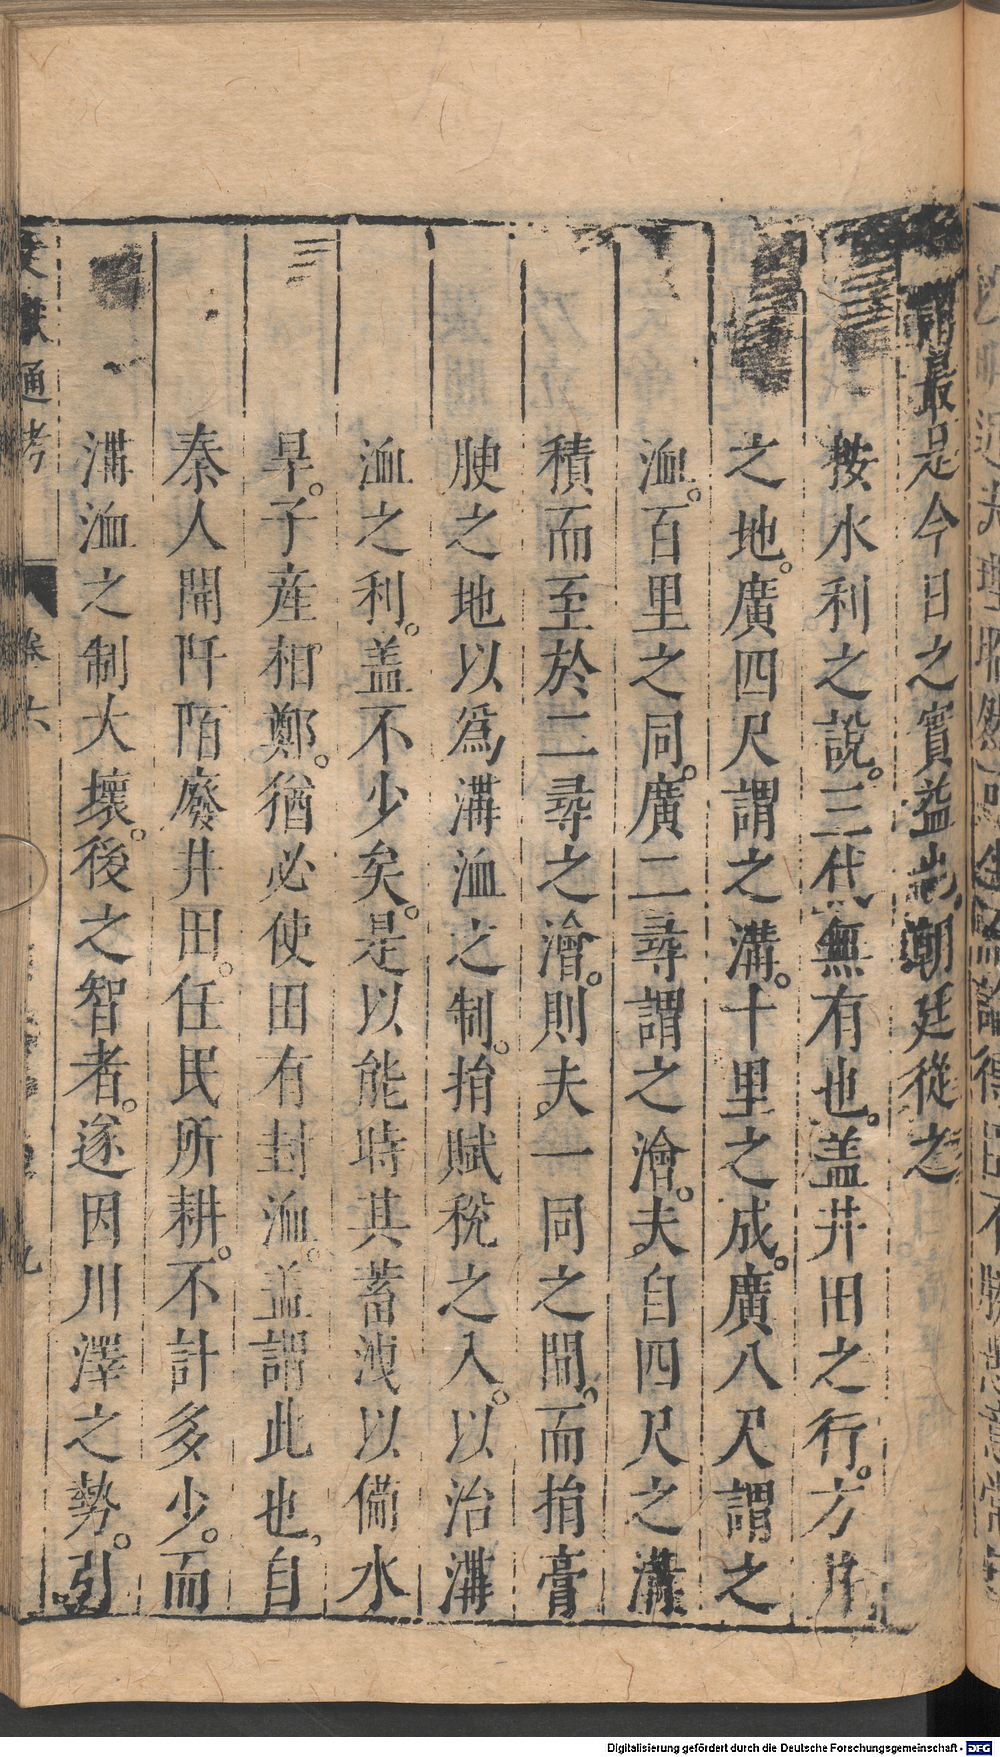 最是今日之實益也朝廷從之
按水利之說。三代無有也。盖井田之行。方井
之地。廣四尺謂之溝。十里之成。廣八尺謂之
洫。百里之同。廣二尋謂之澮。夫自四尺之溝
積而至於二尋之澮。則夫一同之間。而捐膏
腴之地以爲溝洫之制。捐賦稅之入。以治溝
洫之利。盖不少矣。是以能時其蓄洩以備水
旱。子產相鄭。猶必使田有封洫。盖謂此也。自
秦人開阡陌廢井田。任民所耕。不計多少。而
溝洫之制大壞。後之智者。遂因川澤之勢。引
文獻通考 卷六 九
Digitalisierung gefördert durch die Deutsche Forschungsgemeinschaft - DFG